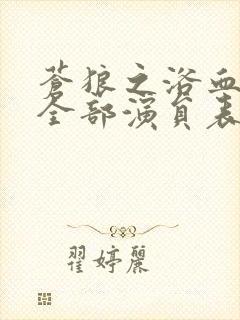 蒼狼之浴血
全部演員表
翟婷麗